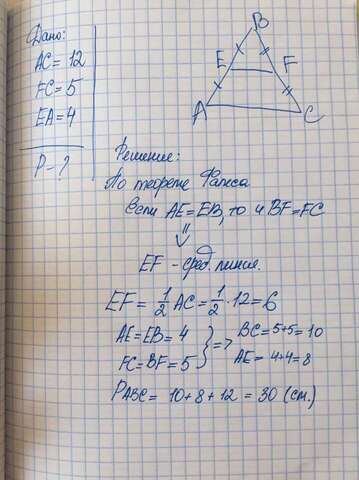 Дано:
AC = 12
FC = 5
EA = 4
P - ?
B
E
F
A
C
Решение:
По теореме Фалеса
Если AE = EB, то и BF = FC
⇓
EF - сред. линия.
EF = 1/2 AC = 1/2 · 12 = 6
AE = EB = 4
FC = BF = 5
} =>
BC = 5+5 = 10
AE = 4+4 = 8
P ABC = 10 + 8 + 12 = 30 (см.)